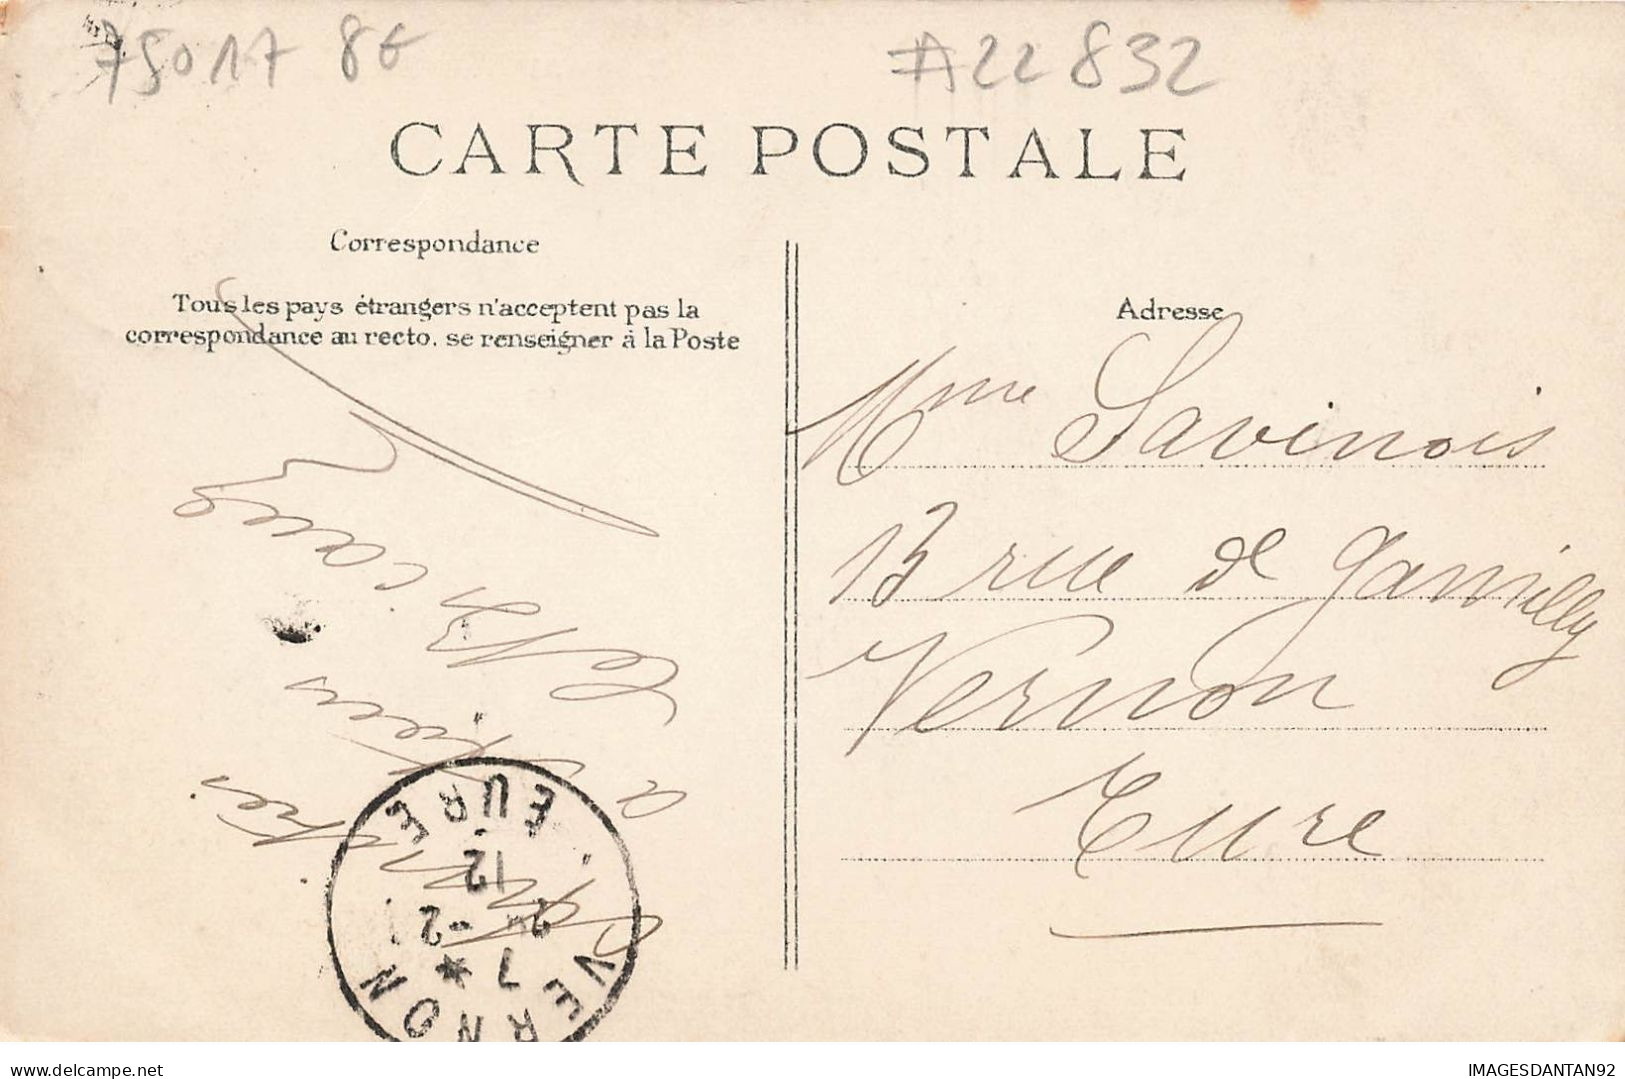 75017 8€
A22832
CARTE POSTALE
Correspondance
Tous les pays étrangers n'acceptent pas la
correspondance au recto. se renseigner à la Poste
Adresse
Mme Savinois
13 rue de Gamilly
Vernon
Eure
a tous
VERNON
EURE
12
IMAGESDANTAN92